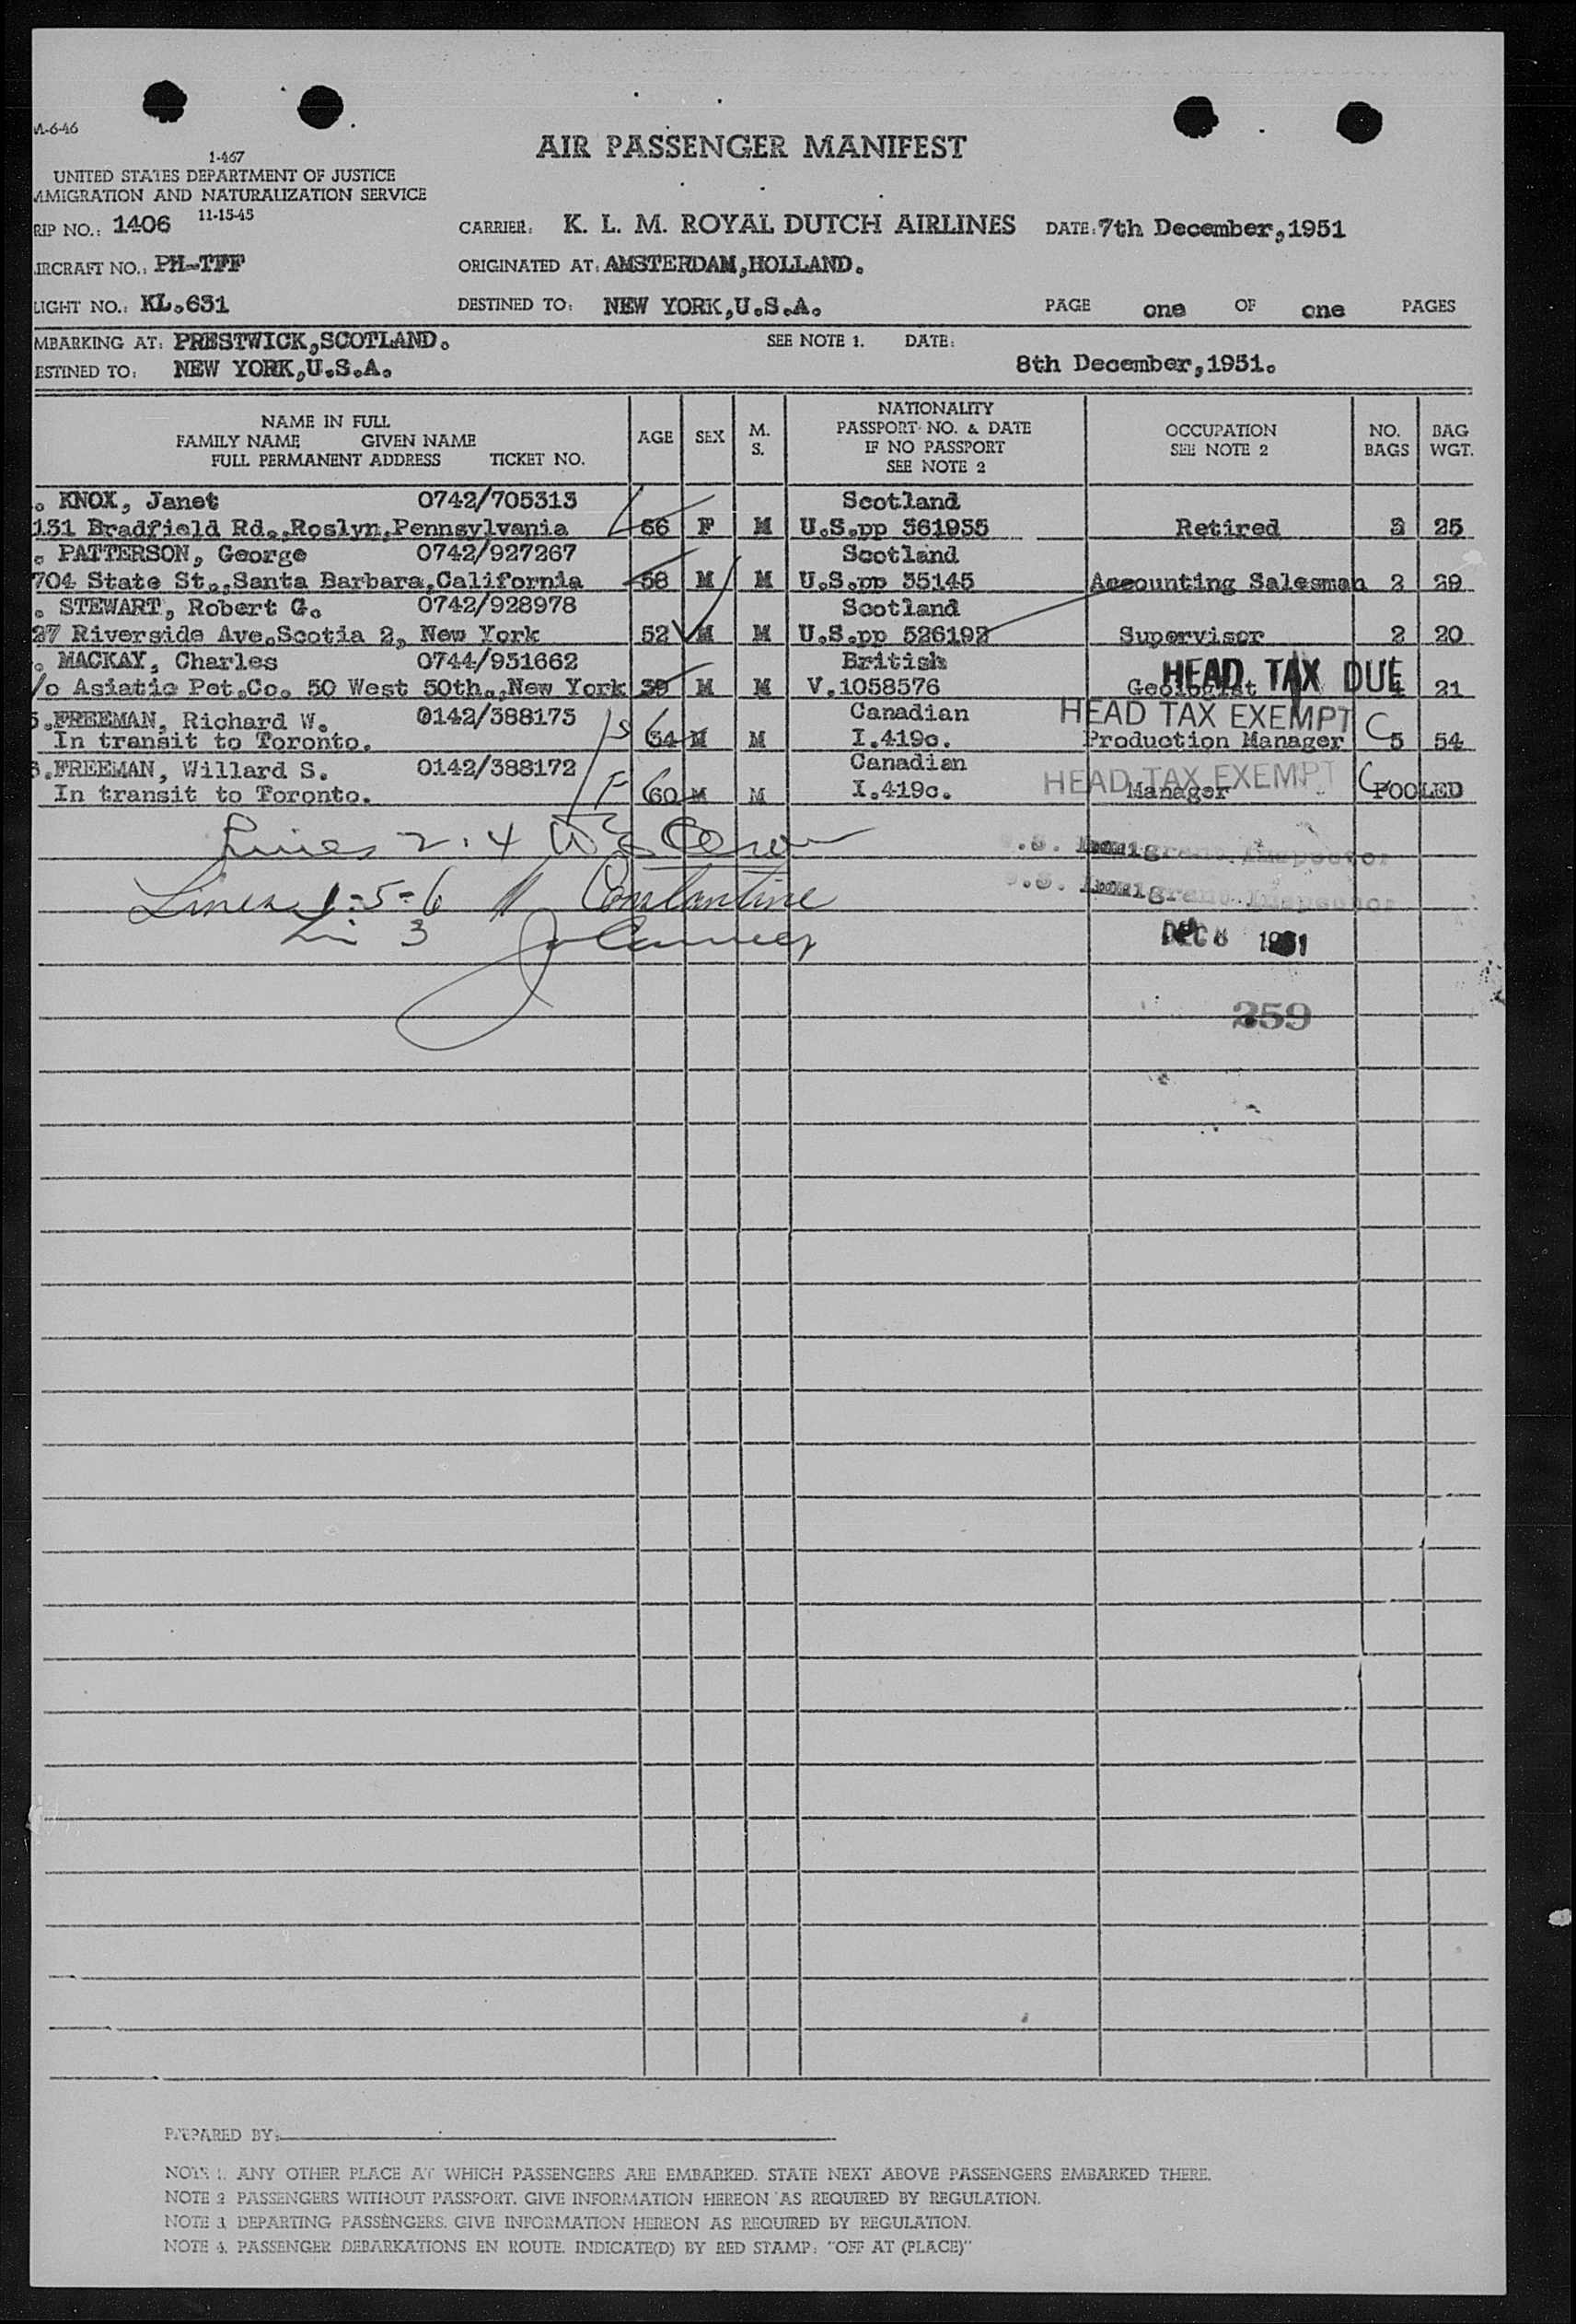 M-6-46
AIR PASSENGER MANIFEST
1-467
UNITED STATES DEPARTMENT OF JUSTICE
MMIGRATION AND NATURALIZATION SERVICE
11-15-45
RIP NO.: 1406
CARRIER: K. L. M. ROYAL DUTCH AIRLINES DATE: 7th December,1951
IRCRAFT NO.: PH-TFF ORIGINATED AT: AMSTERDAM,HOLLAND.
LIGHT NO.: KL.631 DESTINED TO: NEW YORK,U.S.A. PAGE one OF one PAGES
MBARKING AT: PRESTWICK,SCOTLAND. SEE NOTE 1. DATE:
ESTINED TO: NEW YORK,U.S.A. 8th December,1951.
NAME IN FULL
FAMILY NAME GIVEN NAME
FULL PERMANENT ADDRESS TICKET NO.
AGE SEX M. S.
NATIONALITY
PASSPORT NO. & DATE
IF NO PASSPORT
SEE NOTE 2
OCCUPATION
SEE NOTE 2
NO. BAGS
BAG WGT.
. KNOX, Janet 0742/705313 Scotland
131 Bradfield Rd.,Roslyn,Pennsylvania 66 F M U.S.pp 361955 Retired 3 25
. PATTERSON, George 0742/927267 Scotland
704 State St.,Santa Barbara,California 58 M M U.S.pp 35145 Accounting Salesman 2 29
. STEWART, Robert G. 0742/928978 Scotland
27 Riverside Ave.Scotia 2, New York 52 M M U.S.pp 526192 Supervisor 2 20
. MACKAY, Charles 0744/951662 British
/o Asiatic Pet.Co. 50 West 50th.,New York 39 M M V.1058576 Geologist 21
HEAD TAX DUE
5.FREEMAN, Richard W. 0142/388175 Canadian HEAD TAX EXEMPT C
In transit to Toronto. 34 M M I.419c. Production Manager 5 54
.FREEMAN, Willard S. 0142/388172 Canadian HEAD TAX EXEMPT C
In transit to Toronto. F 60 M M I.419c. Manager POOLED
Lines 2.4
.S. Immigrant Inspector
Lines 1-5-6 Constantine
.S. Immigrant Inspector
Li 3
DEC 8 1951
259
PREPARED BY:
NOTE 1. ANY OTHER PLACE AT WHICH PASSENGERS ARE EMBARKED. STATE NEXT ABOVE PASSENGERS EMBARKED THERE.
NOTE 2 PASSENGERS WITHOUT PASSPORT. GIVE INFORMATION HEREON AS REQUIRED BY REGULATION.
NOTE 3. DEPARTING PASSENGERS. GIVE INFORMATION HEREON AS REQUIRED BY REGULATION.
NOTE 4. PASSENGER DEBARKATIONS EN ROUTE. INDICATE(D) BY RED STAMP: "OFF AT (PLACE)"